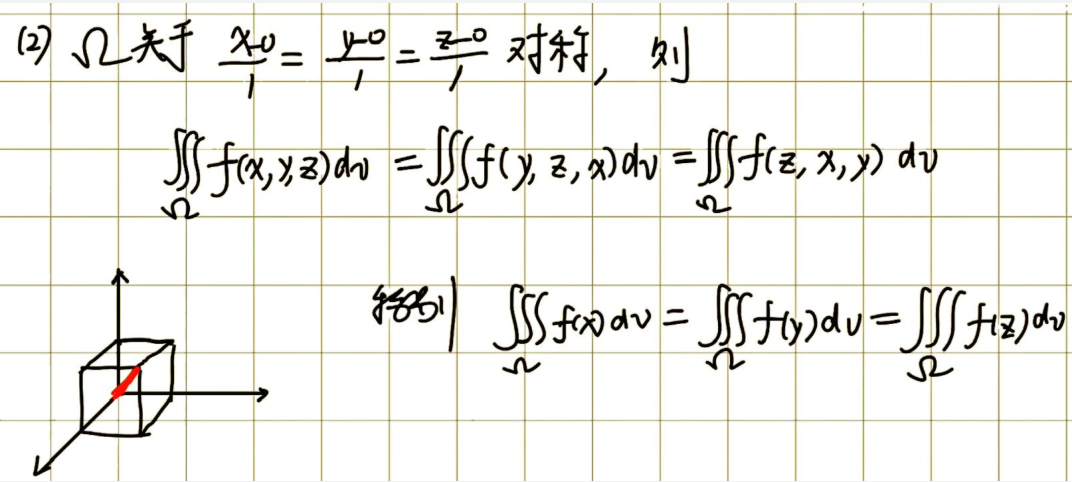 (2) Ω关于 \frac{x-0}{1} = \frac{y-0}{1} = \frac{z-0}{1} 对称, 则
∭_Ω f(x,y,z)dv = ∭_Ω f(y,z,x)dv = ∭_Ω f(z,x,y) dv
特别 ∭_Ω f(x)dv = ∭_Ω f(y)dv = ∭_Ω f(z)dv